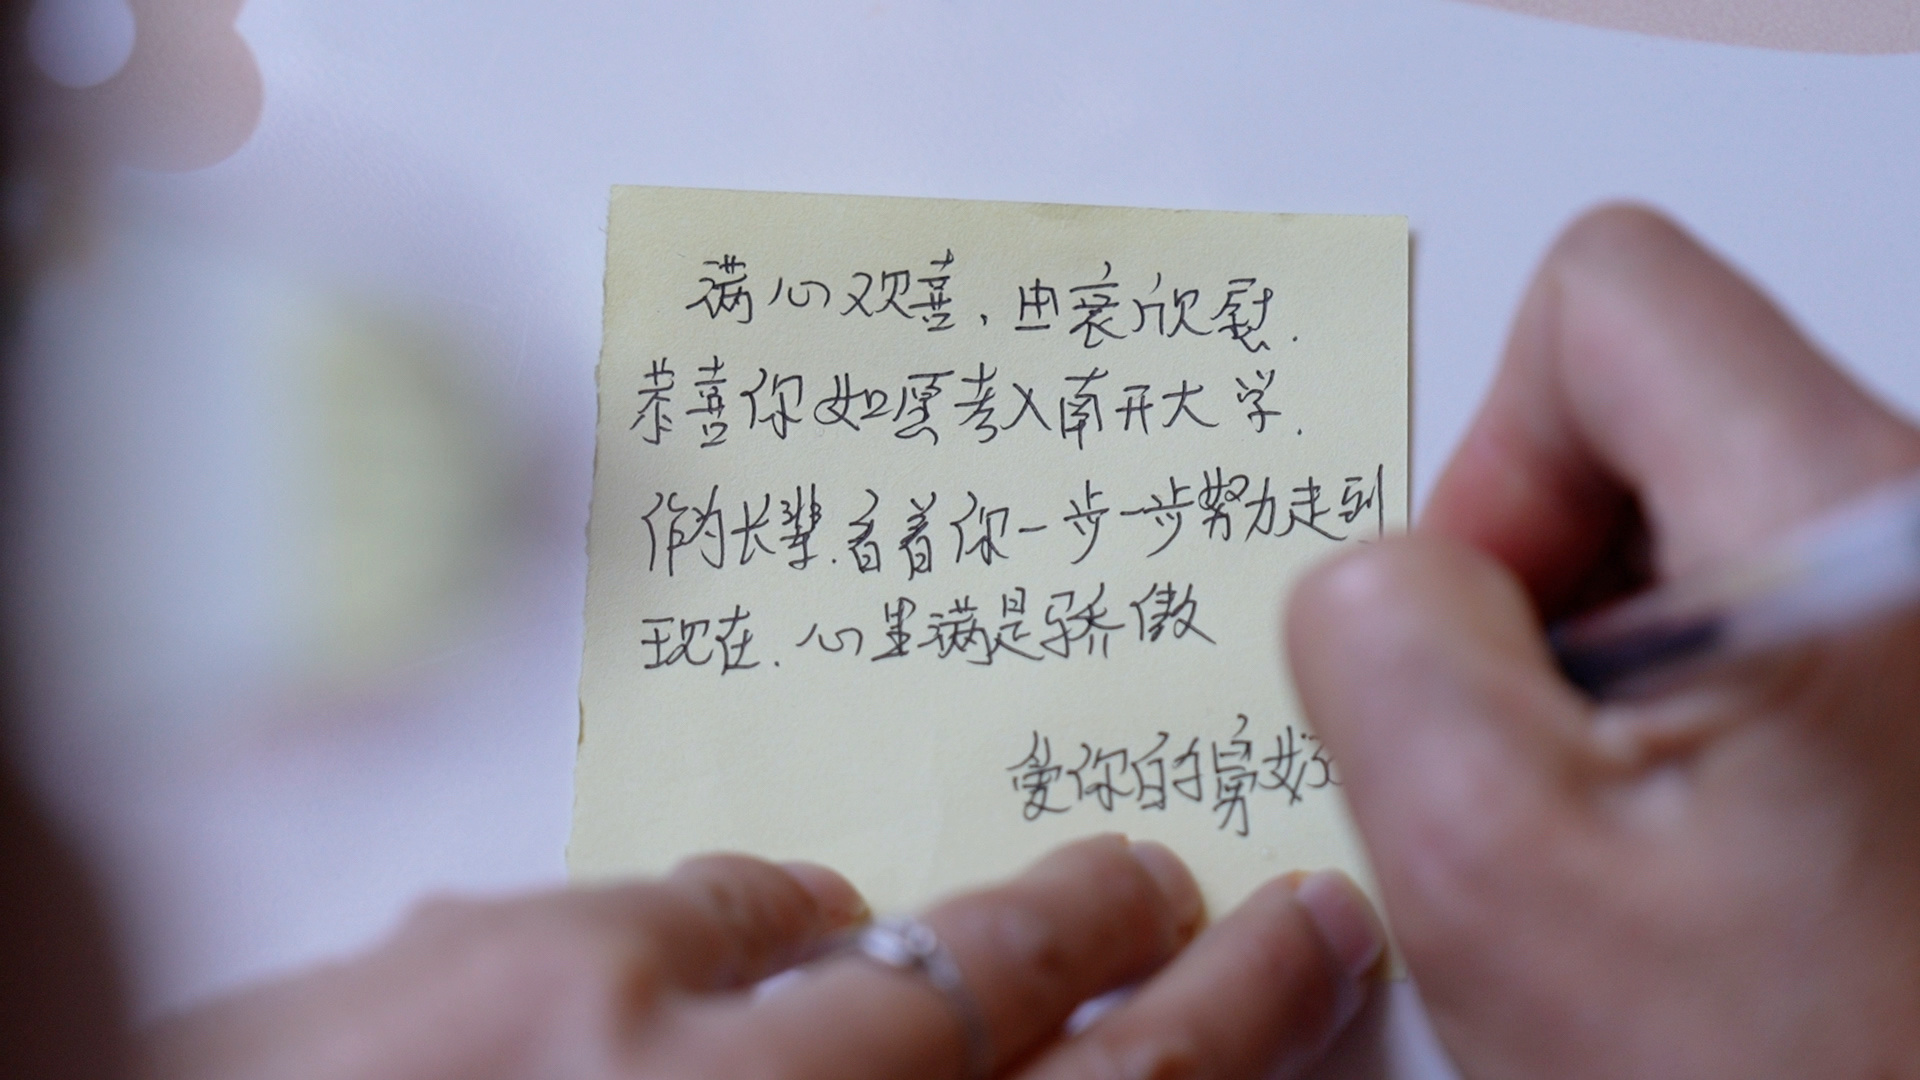 满心欢喜，由衷欣慰.
恭喜你如愿考入南开大学.
作为长辈.看着你一步一步努力走到
现在.心里满是骄傲
爱你的舅奶